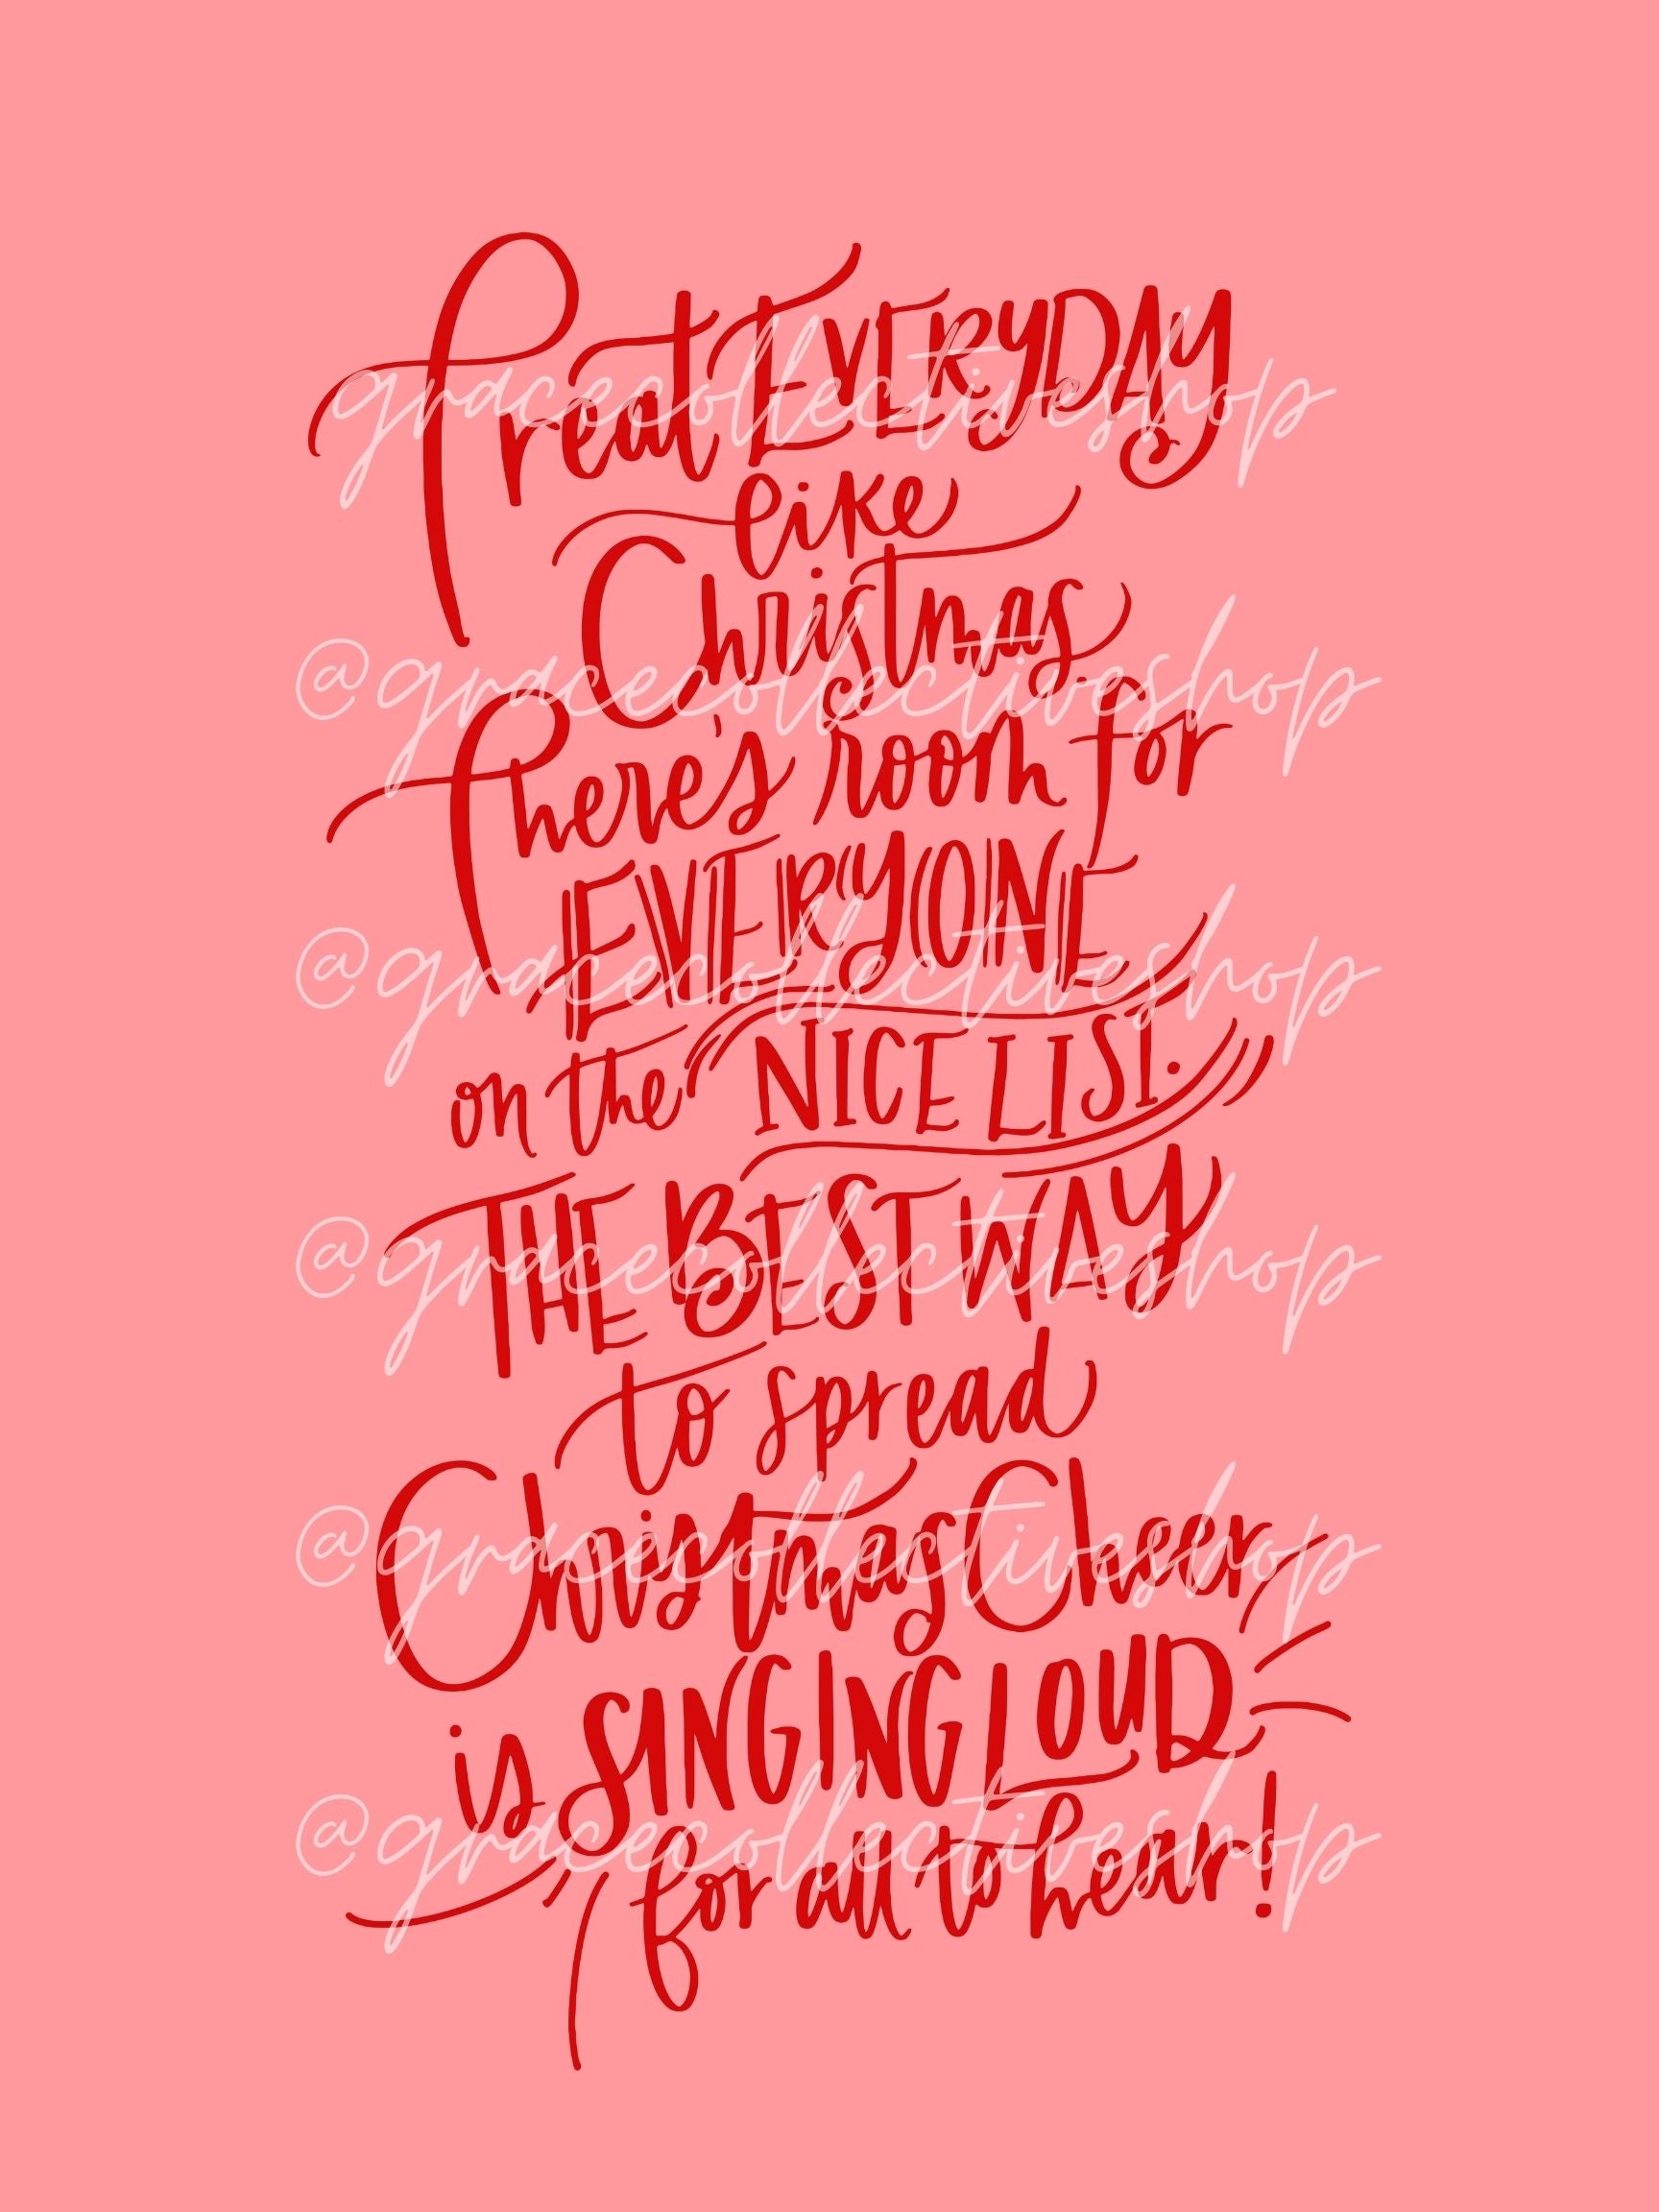 Treat EVERYDAY
gracecollectiveshop
like
Christmas
@gracecollectiveshop
There's room for
EVERYONE
@gracecollectiveshop
on the NICE LIST.
THE BEST WAY
@gracecollectiveshop
to spread
Christmas Cheer
@gracecollectiveshop
is SINGING LOUD
@gracecollectiveshop
for all to hear!